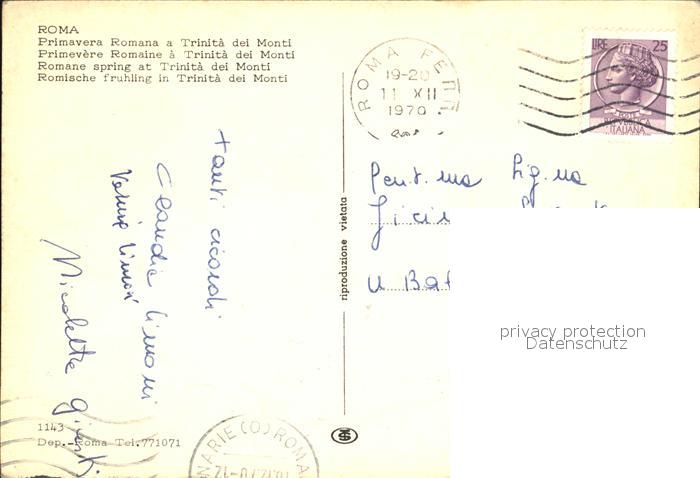 ROMA
Primavera Romana a Trinità dei Monti
Primevère Romaine à Trinità dei Monti
Romane spring at Trinità dei Monti
Romische fruhling in Trinità dei Monti
ROMA FERR.
19-20
11 XII
1970
LIRE 25
POSTE
REPVBBLICA
ITALIANA
tanti ricordi
Claudia Limoni
Limoni
Nicoletta
Gent.ma Sig.na
riproduzione vietata
privacy protection
Datenschutz
1143
Dep.-Roma Tel.771071
NARIE (O) ROMA